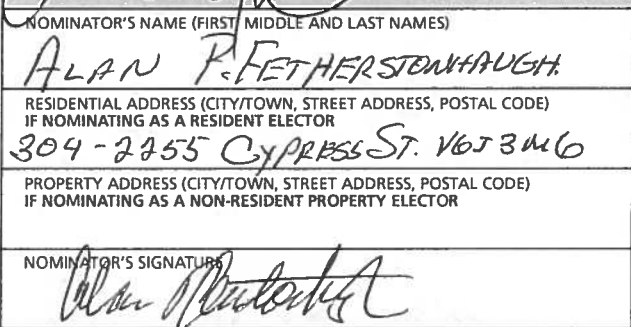 NOMINATOR'S NAME (FIRST, MIDDLE AND LAST NAMES)
ALAN P. FETHERSTONHAUGH.
RESIDENTIAL ADDRESS (CITY/TOWN, STREET ADDRESS, POSTAL CODE)
IF NOMINATING AS A RESIDENT ELECTOR
304-2255 CYPRESS ST. V6J 3M6
PROPERTY ADDRESS (CITY/TOWN, STREET ADDRESS, POSTAL CODE)
IF NOMINATING AS A NON-RESIDENT PROPERTY ELECTOR
NOMINATOR'S SIGNATURE
Alan